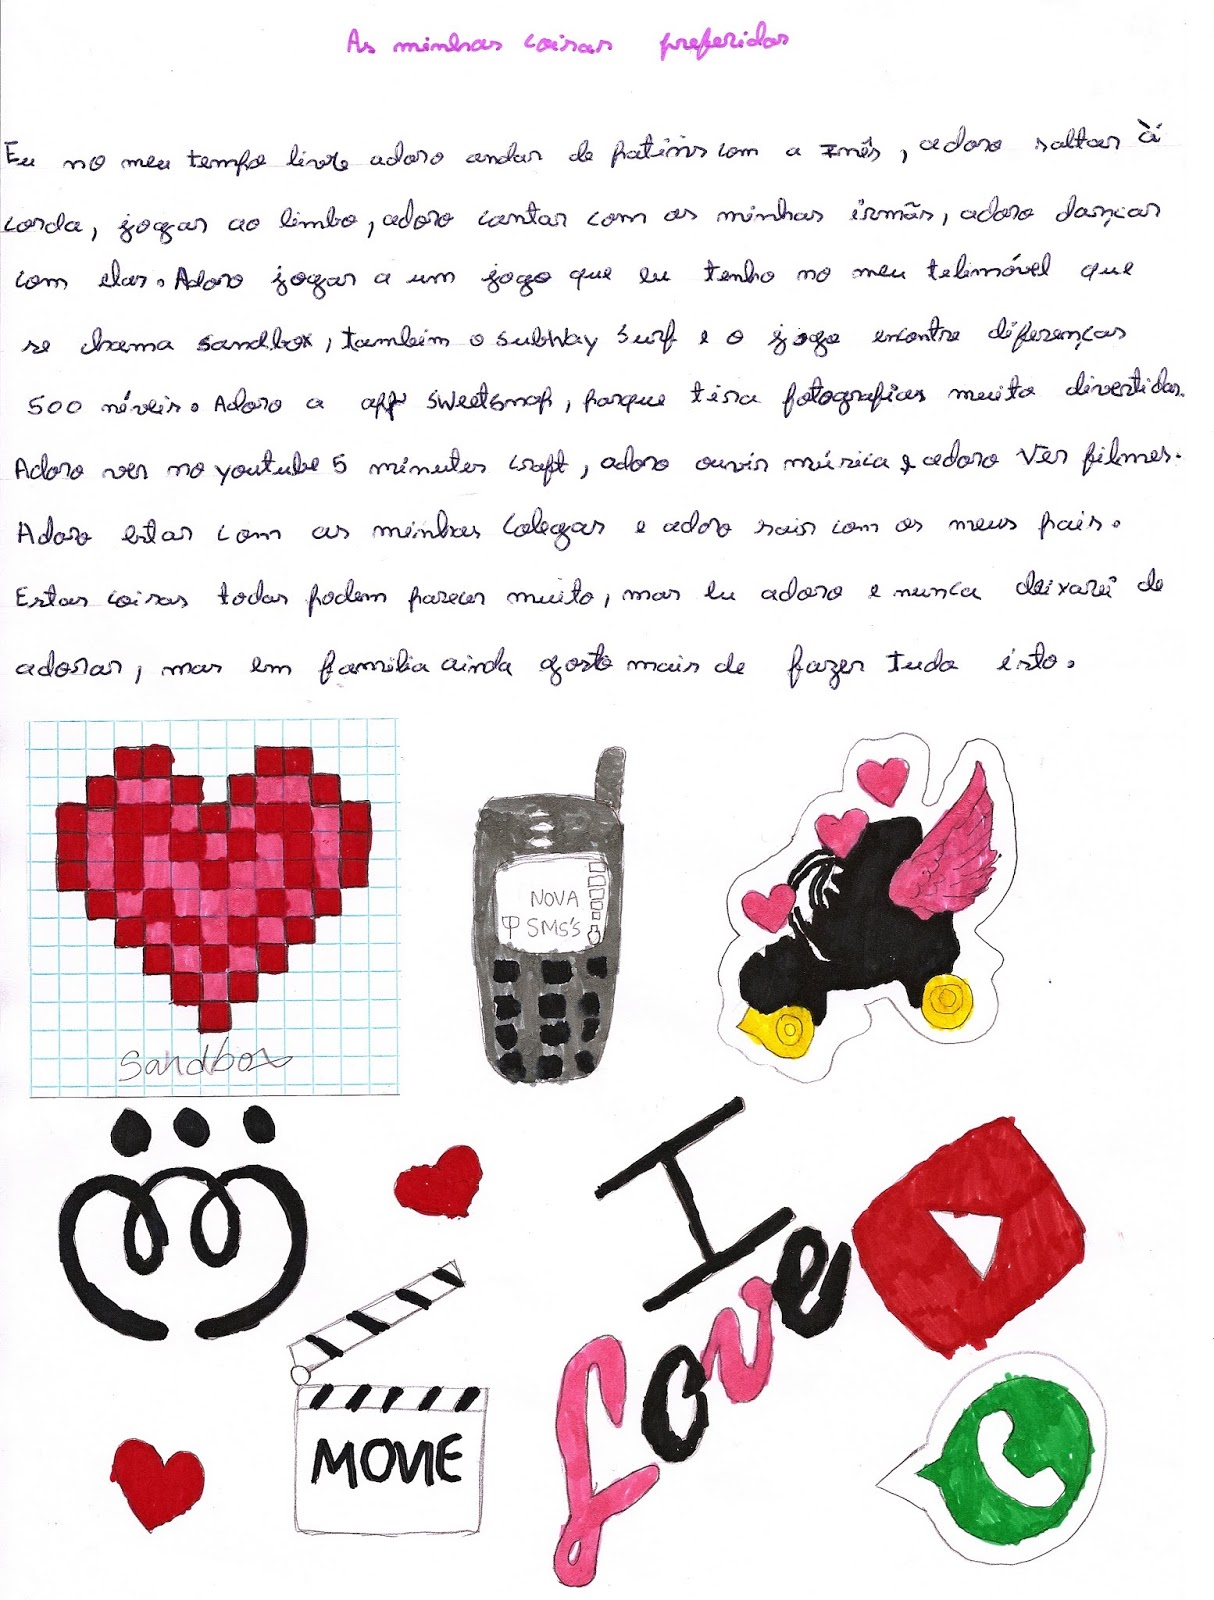 As minhas coisas preferidas
Eu no meu tempo livre adoro andar de patins com a Inês, adoro saltar à
corda, jogar ao limbo, adoro cantar com as minhas irmãs, adoro dançar
com elas. Adoro jogar a um jogo que eu tenho no meu telemóvel que
se chama sandbox, também o subway surf e o jogo encontre diferenças
500 níveis. Adoro a app sweetsnap, porque tira fotografias muito divertidas.
Adoro ver no youtube 5 minutes craft, adoro ouvir música e adoro ver filmes.
Adoro estar com as minhas colegas e adoro sair com os meus pais.
Estas coisas todas podem parecer muito, mas eu adoro e nunca deixarei de
adorar, mas em família ainda gosto mais de fazer tudo isto.
NOVA
SMS's
Sandbox
I
Love
MOVIE